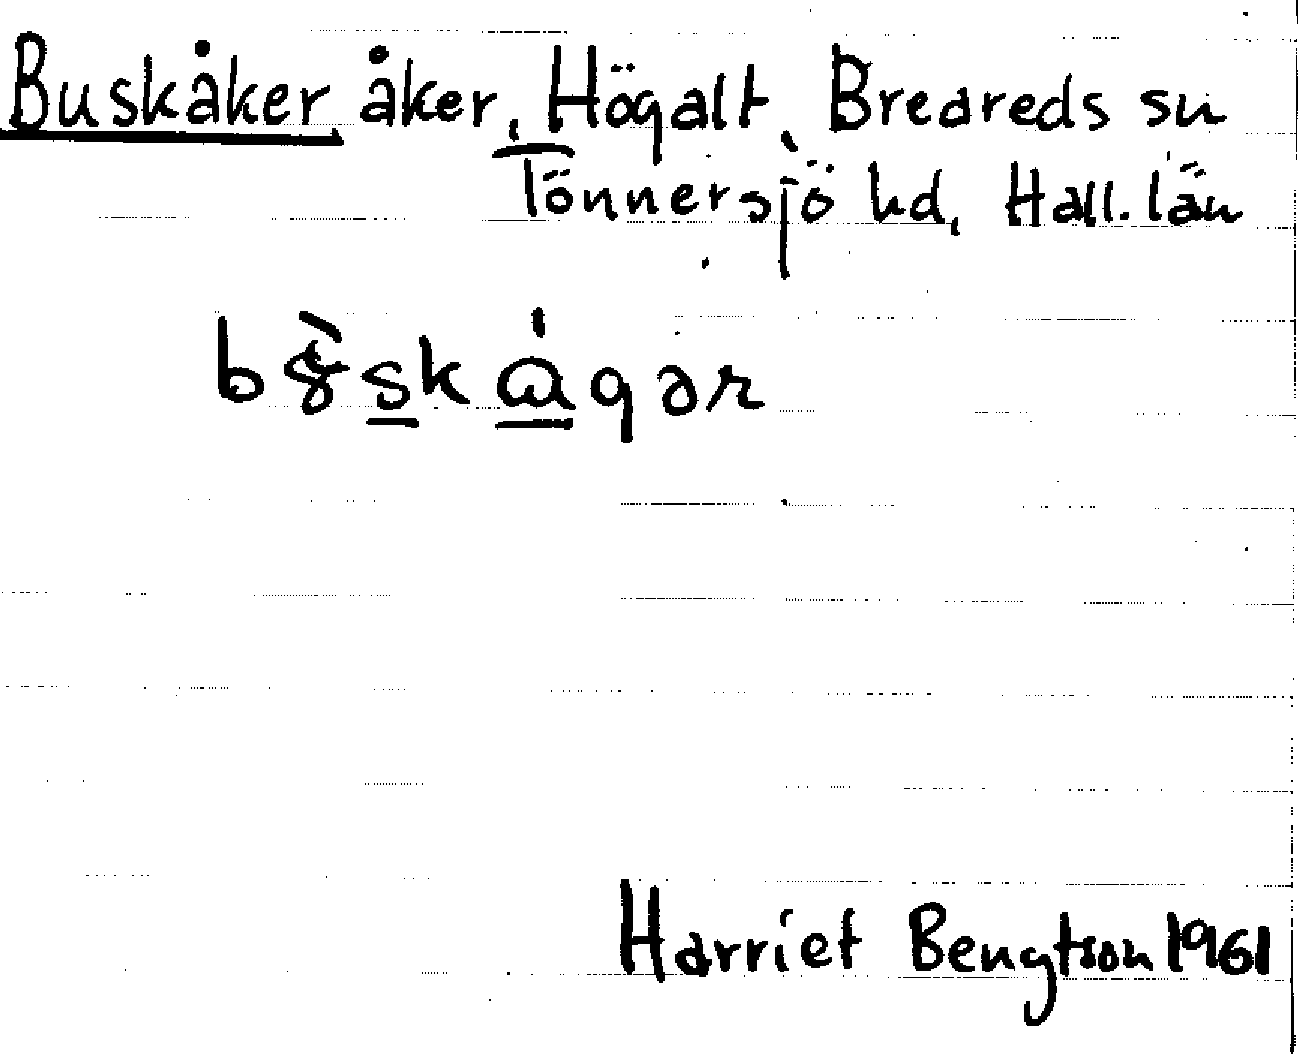 Buskåker åker, Högalt, Breareds sn
Tönnersjö hd, Hall. län
Harriet Bengtson 1961